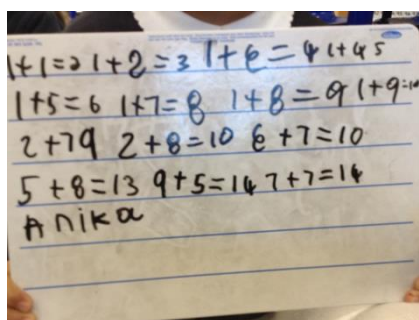 1+1=2 1+2=3 1+6=4 1+4 5
1+5=6 1+7=8 1+8=9 1+9=10
2+79 2+8=10 6+7=10
5+8=13 9+5=14 7+7=14
Anika